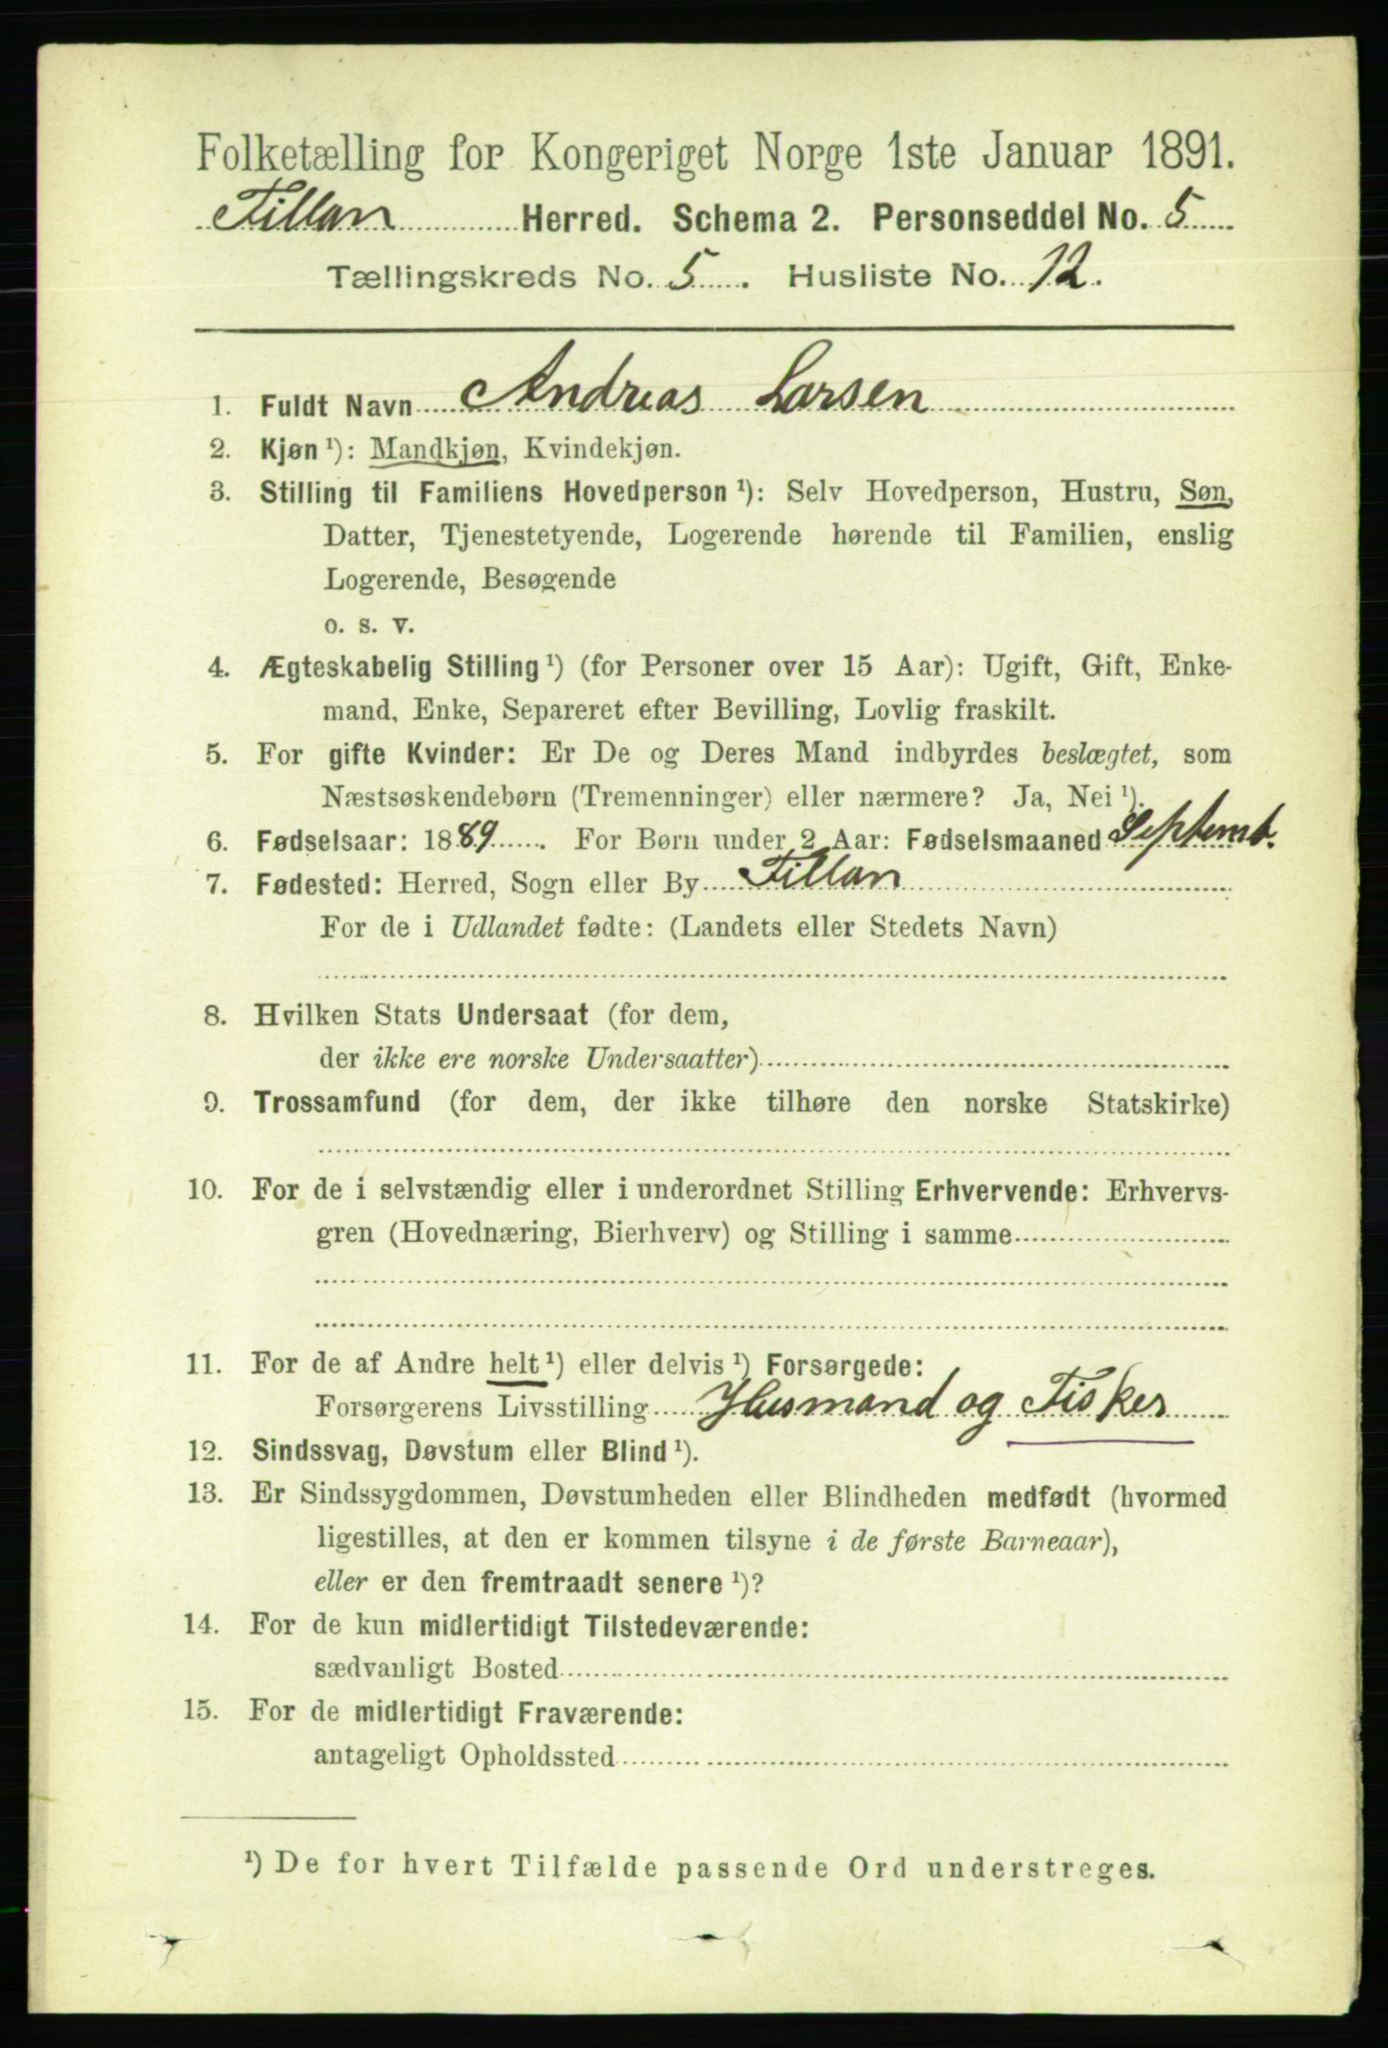 Folketælling for Kongeriget Norge 1ste Januar 1891.
Fillan Herred. Schema 2. Personseddel No. 5
Tællingskreds No. 5. Husliste No. 12.
1. Fuldt Navn Andreas Larsen
2. Kjøn ¹): Mandkjøn, Kvindekjøn.
3. Stilling til Familiens Hovedperson ¹): Selv Hovedperson, Hustru, Søn,
Datter, Tjenestetyende, Logerende hørende til Familien, enslig
Logerende, Besøgende
o. s. v.
4. Ægteskabelig Stilling ¹) (for Personer over 15 Aar): Ugift, Gift, Enke-
mand, Enke, Separeret efter Bevilling, Lovlig fraskilt.
5. For gifte Kvinder: Er De og Deres Mand indbyrdes beslægtet, som
Næstsøskendebørn (Tremenninger) eller nærmere? Ja, Nei ¹).
6. Fødselsaar: 1889. For Børn under 2 Aar: Fødselsmaaned Septemb.
7. Fødested: Herred, Sogn eller By Fillan
For de i Udlandet fødte: (Landets eller Stedets Navn)
8. Hvilken Stats Undersaat (for dem,
der ikke ere norske Undersaatter)
9. Trossamfund (for dem, der ikke tilhøre den norske Statskirke)
10. For de i selvstændig eller i underordnet Stilling Erhvervende: Erhvervs-
gren (Hovednæring, Bierhverv) og Stilling i samme
11. For de af Andre helt ¹) eller delvis ¹) Forsørgede:
Forsørgerens Livsstilling Husmand og Fisker
12. Sindssvag, Døvstum eller Blind ¹).
13. Er Sindssygdommen, Døvstumheden eller Blindheden medfødt (hvormed
ligestilles, at den er kommen tilsyne i de første Barneaar),
eller er den fremtraadt senere ¹)?
14. For de kun midlertidigt Tilstedeværende:
sædvanligt Bosted
15. For de midlertidigt Fraværende:
antageligt Opholdssted
¹) De for hvert Tilfælde passende Ord understreges.